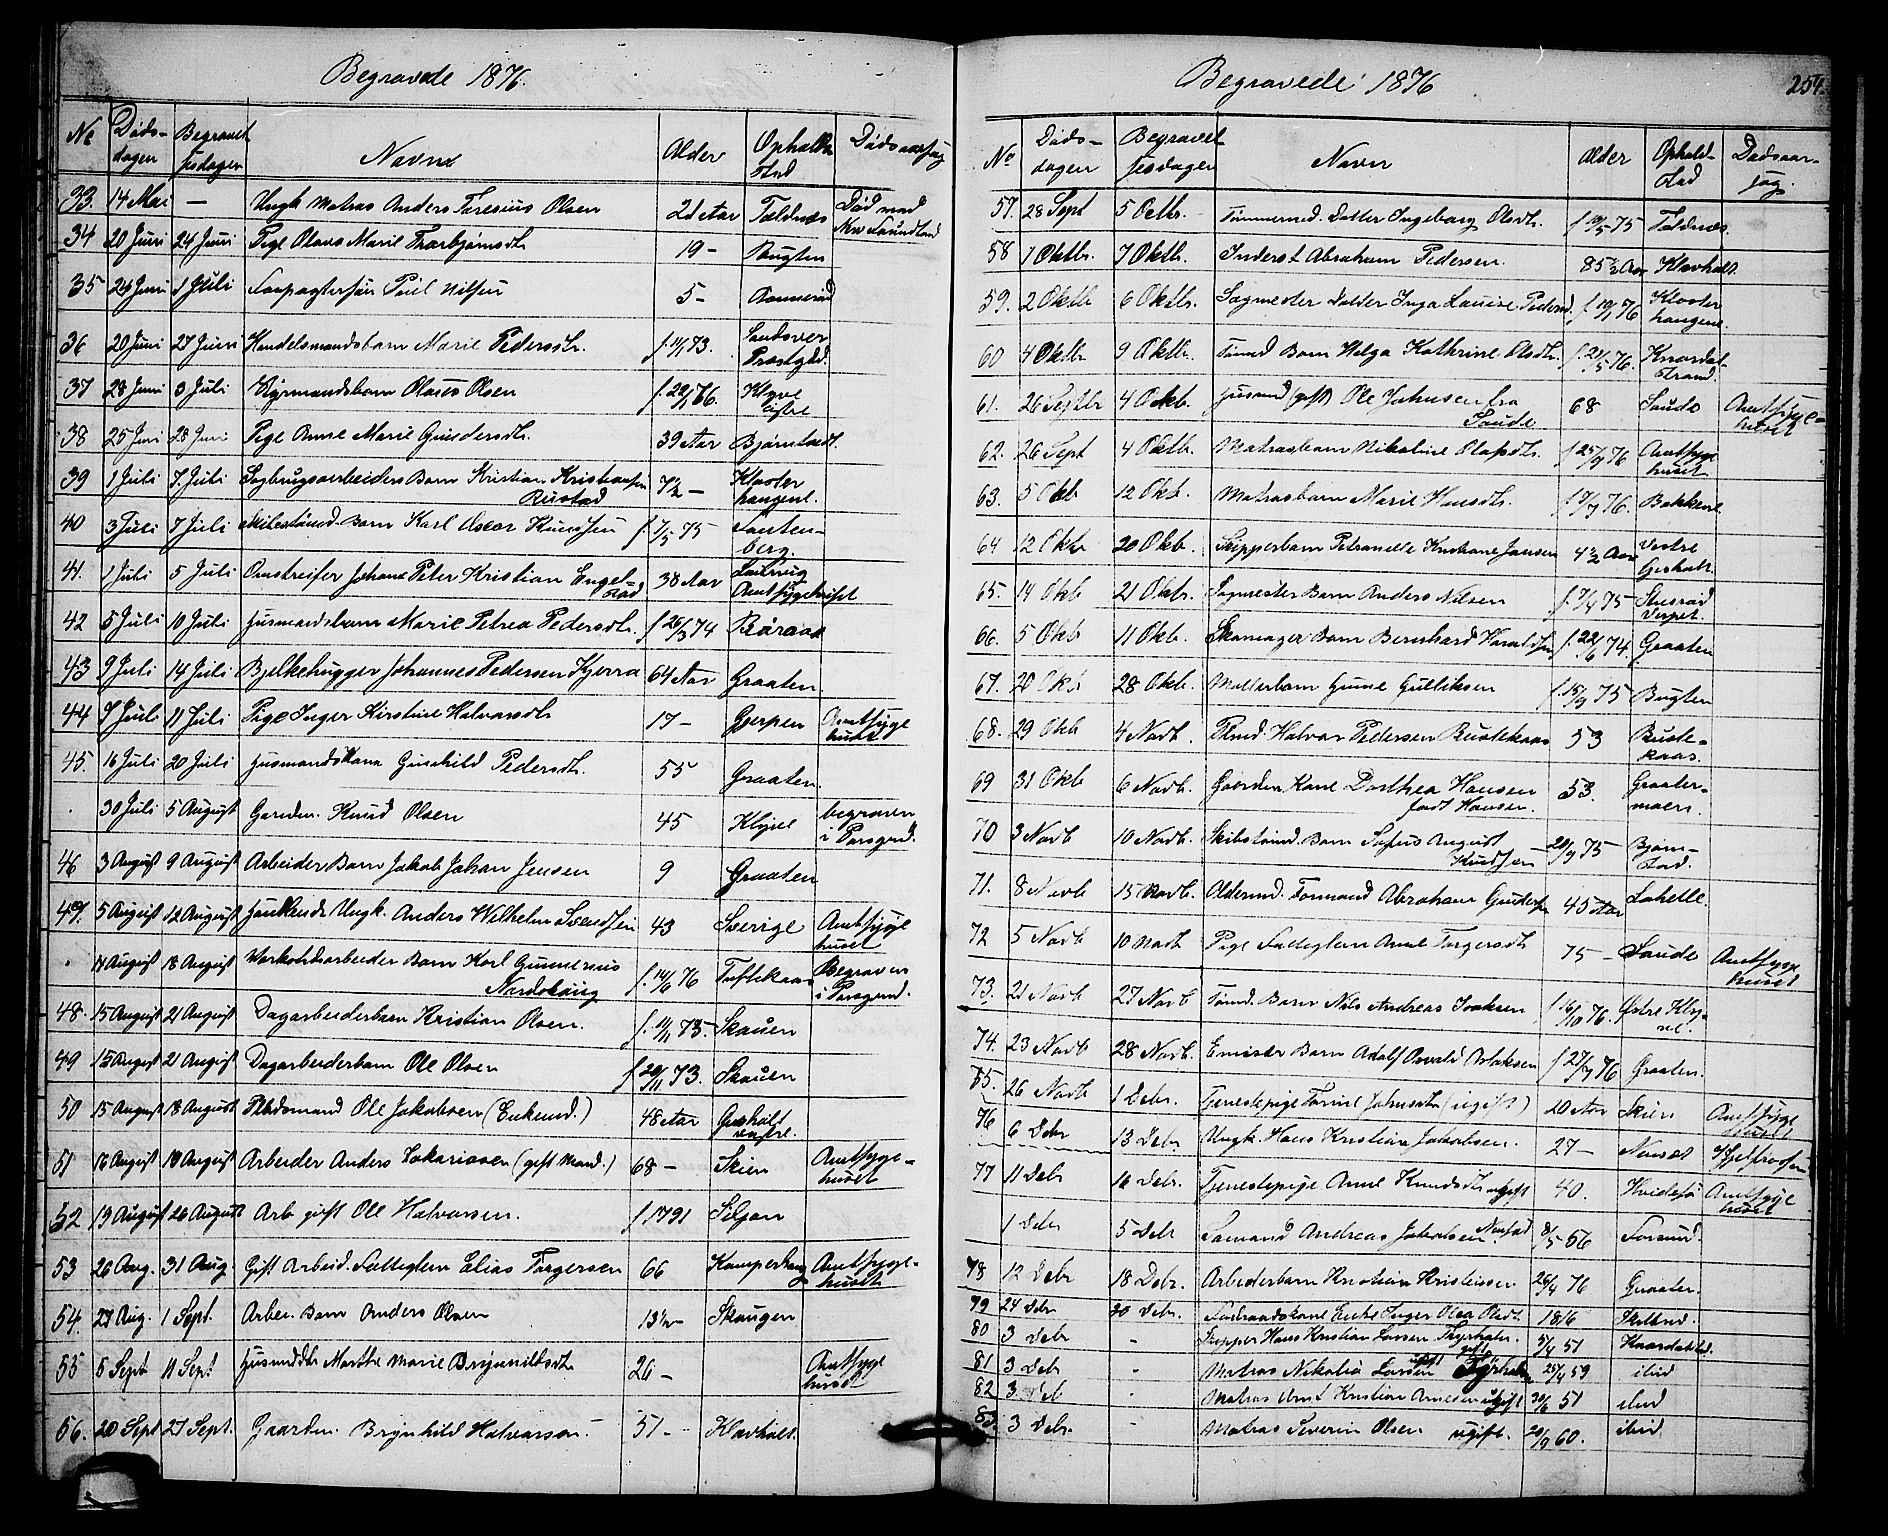 Begravede 1876.
No Døds-dagen Begravelsesdagen Navne Alder Opholdsstad Dødsaarsag
33. 14 Mai — Ungk Matros Anders Olsen 21 Aar Død ved New Foundland
34 20 Juni 24 Juni Pige Marie Thorbjørnsdtr 19 - Bugten
35 26 Juni 1 Juli Poul Nilsen 5 -
36 20 Juni 27 Juni Handelsmandsbarn Marie Pedersdtr. f. 11/1 73. Sandsver Prestgjeld.
37 28 Juni 3 Juli Styrmandsbarn Olaus Olsen Klyve
38 25 Juni 28 Juni Pige Anne Marie Gundersdtr. 39 Aar Bjørnstadt.
39 1 Juli 7 Juli Sagbrugsarbeiders Barn Kristian Kristiansen
Rustad 7½ — Kloster haugene.
40 3 Juli 7 Juli Skibstømmd. Barn Karl Oscar Knudsen f. 7/5 75 Fantenberg.
41. 1 Juli 5 Juli Omstreifer Johans Peter Kristian Engelstad 38 Aar Laurvig Amtsygehuset
42 5 Juli 10 Juli Husmandsbarn Marie Petrea Pedersdtr. f 26/3 74
43 9 Juli 14 Juli Bjelkehugger Johannes Pedersen Kjerra 64 Aar Graaten
44 7 Juli 11 Juli Pige Inger Kirstine Halvorsdtr 17 - Gjerpen Amtsygehuset
45. 16 Juli 20 Juli Husmandskone Gunhild Pedersdtr. 55 Graaten.
. 30 Juli 5 August Gaarden. Knud Olsen 45 Klyve begraven i Porsgrund.
46 3 August 9 August Arbeider Barn Jakob Johan Jensen 9 Graaten
47. 5 August 12 August Ungk. Anders Wilhelm Svendsen 43 Sverige Amtsygehuset
. 14 August 18 August Værkstedsarbeider Barn Karl Gunnerius
Nordskoug f. 14/6 76 Tuftekaas Begraven i Porsgrund.
48. 15 August 21 August Dagarbeiderbarn Kristian Olsen. f. 11/11 73. Skauen
49 15 August 21 August Dagarbeiderbarn Ole Olsen f 20/11 73. Skauen
50 15 August 18 August Pladsmand Ole Jakobsen (Enkemd.) 48 Aar Gjesholt vestre.
51 16 August 19 August Arbeider Anders Sakariasen (gift Mand.) 68 - Skien Amtsygehuset
52 19 August 26 August Arb gift Ole Halvorsen. f 1791 Siljan
53 26 Aug. 31 Aug. Gift Arbeid. Fattiglem Elias Torgersen 66 Kamperhaug Amtsygehuset
54. 27 Aug. 1 Sept. Arbei. Barn Anders Olsen 13½ - Skougen
55 8 Sept 11 Sept Husmddtr Marthe Marie Brynildsdtr 26 - Amtsygehuset
56. 20 Sept 27 Sept. Gaarden. Brynhild Halvorsen 51 - Klovholt.
Begravede 1876
254.
No Døds-dagen Begravelsesdagen Navn Alder Opholdstad Dødsaarsag.
57. 28 Sept 5 Octb. Tømmermd. Datter Ingeborg Olsdtr. f 19/5 75
58 1 Oktbr. 7 Oktb. Inderst Abraham Pedersen. 85½ Aar Klovholt
59. 2 Oktb 6 Oktb. Sagmester Datter Inga Louise Pedersd. f. 19/1 76 Klosterhaugene.
60 4 Oktbr 9 Oktb. Tømmd Barn Helga Kathrine Olsdtr. f. 21/5 76. Knardalstrand.
61. 26 Septbr 4 Oktb. Husmd (gift) Ole Johnsen fra
Saude 68 Saude Amtsygehuset
62. 26 Sept 4 Oktb. Matrosbarn Nikoline Olafsdtr. f 25/9 76 Amtsygehuset
63. 5 Oktb 12 Oktb. Matrosbarn Marie Hansdtr. f 7/7 76. Bakkene
64 12 Oktb 20 Oktb. Skipperbarn Petronelle Jansen 4½ Aar Vestre Gjesholt.
65. 14 Oktb 21 Oktb. Sagmester Barn Anders Nilsen f. 7/4 75
66. 5 Oktb 11 Oktb. Skomager Barn Bernhard Haraldsen f. 22/6 74. Graaten
67. 20 Oktb 28 Oktb. Møllerbarn Gunne Gulliksen f. 15/9 75 Bugten
68. 29 Oktb 4 Novb. Plmd. Halvor Pedersen Bustekaas 53 Bustekaas.
69 31 Oktb 6 Novb. Gaarden. Kone Dorthea Hansen
født Hansen. 53. Graatenmoen
70 3 Novb 10 Novb. Skibstømmd. Barn Sofus August
Knudsen 20/9 75 Bjørnstad.
71. 8 Novb 15 Novb. Formand Abraham Gundersen 45 Aar Lahelle.
72 5 Novb 10 Novb Pige Fattiglem Anne Torgersdtr 75 - Saude Amtsygehuset
73. 21 Novb 27 Novb Tømmd. Barn Nils Andreas Isaksen f 16/10 76. Østre Klyve
74. 23 Novb 28 Novb. Barn Adolf Osvald Aslaksen f 27/7 76 Graaten.
75. 26 Novb 1 Debr. Tjenestepige Johnsdtr (ugift) 20 Aar Skien Amtsygehuset
76 6 Debr 13 Debr Ungk. Hans Kristian Jakobsen. 27 - Nenset
77 11 Debr 16 Debr. Tjenestepige Anne Knudsdtr ugift 40. Hvideseid Amtsygehuset
1 Debr 5 Debr Sømand Andreas Jakobsen 8/5 56
78 12 Debr 18 Debr. Arbeiderbarn Kristian Kristensen 26/4 76 Graaten.
79 24 Debr 30 Debr. Føderaadskone Enke Inger Olea Olsdt. 1816
80 3 Debr - Skipper Hans Kristian Larsen Thyrholm. gift 5/4 51 Knardalstd.
81 3 Debr . Matros Nikolai Larsen ugift Thyrholm 25/4 59 ibid
82 3 Deb . Matros Arnt Kristian Arnesen ugift 30/6 51 ibid
83. 3 Debr. - Matros Severin Olsen ugift. 20/9 60. ibid.